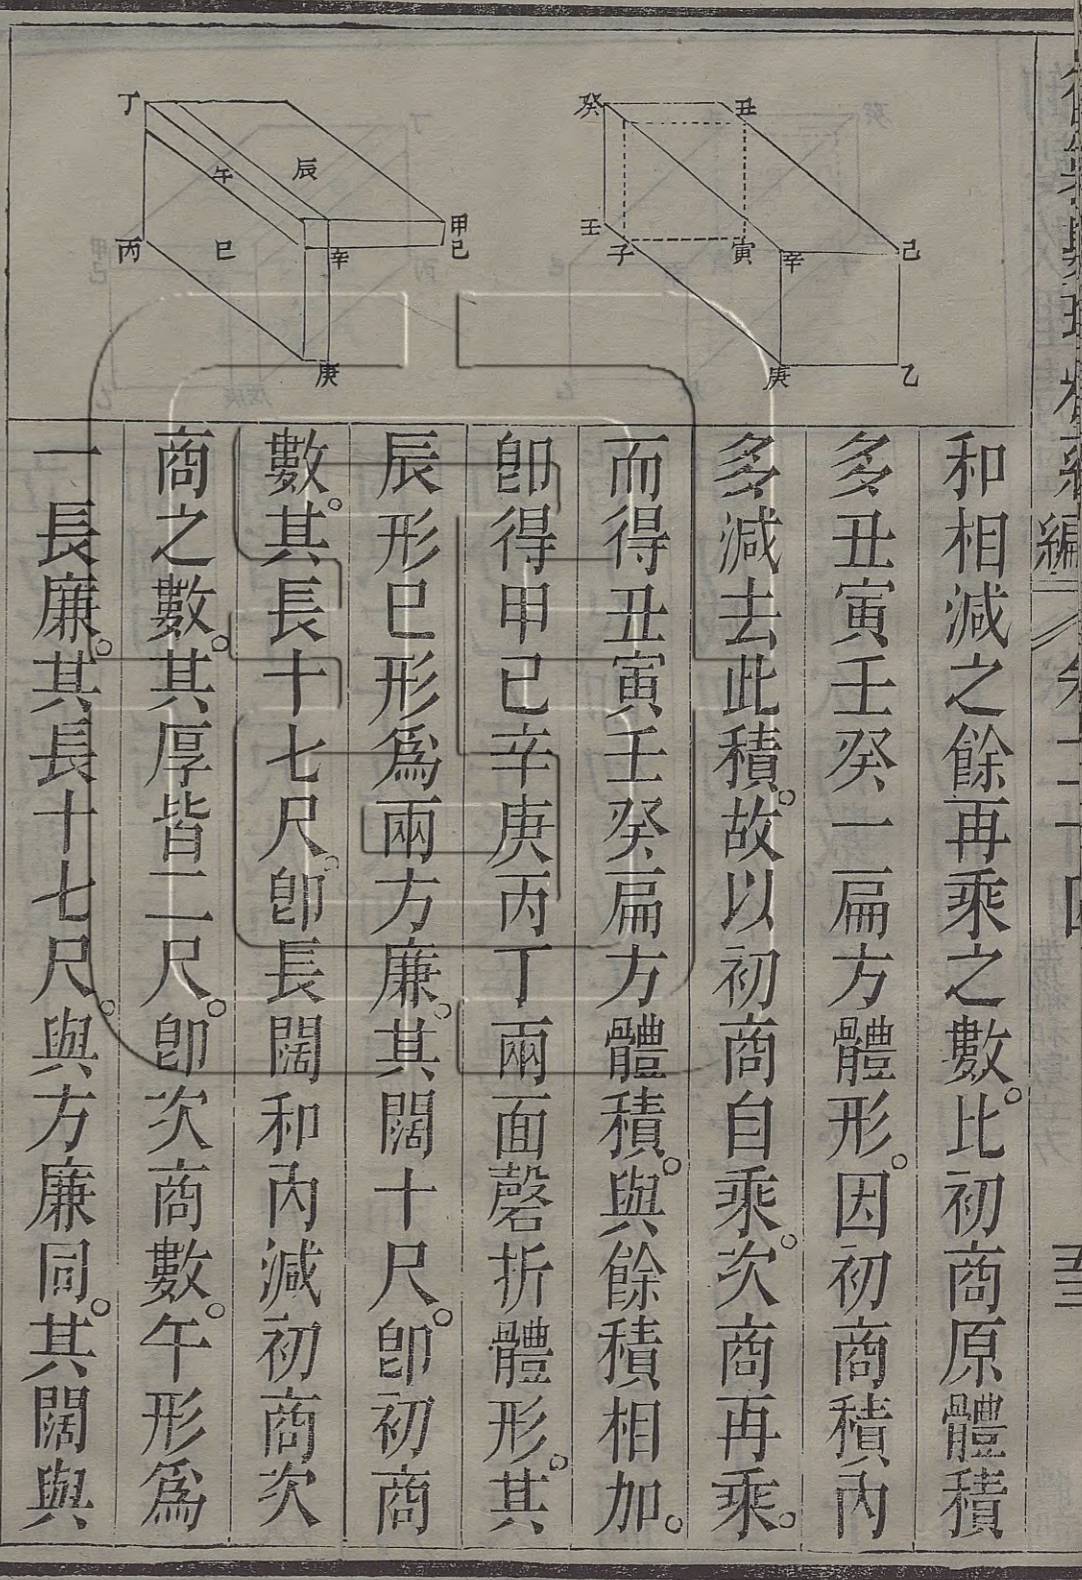 癸 丑
壬 子 寅 辛 己
庚 乙
丁 午 辰
丙 巳 辛 甲
己
庚
和相減之餘再乘之數。比初商原體積
多丑寅壬癸一扁方體形。因初商積內
多減去此積。故以初商自乘。次商再乘。
而得丑寅壬癸扁方體積。與餘積相加。
卽得甲己辛庚丙丁兩面磬折體形。其
辰形巳形爲兩方廉。其闊十尺。卽初商
數。其長十七尺。卽長闊和內減初商次
商之數。其厚皆二尺。卽次商數。午形爲
一長廉。其長十七尺。與方廉同。其闊與